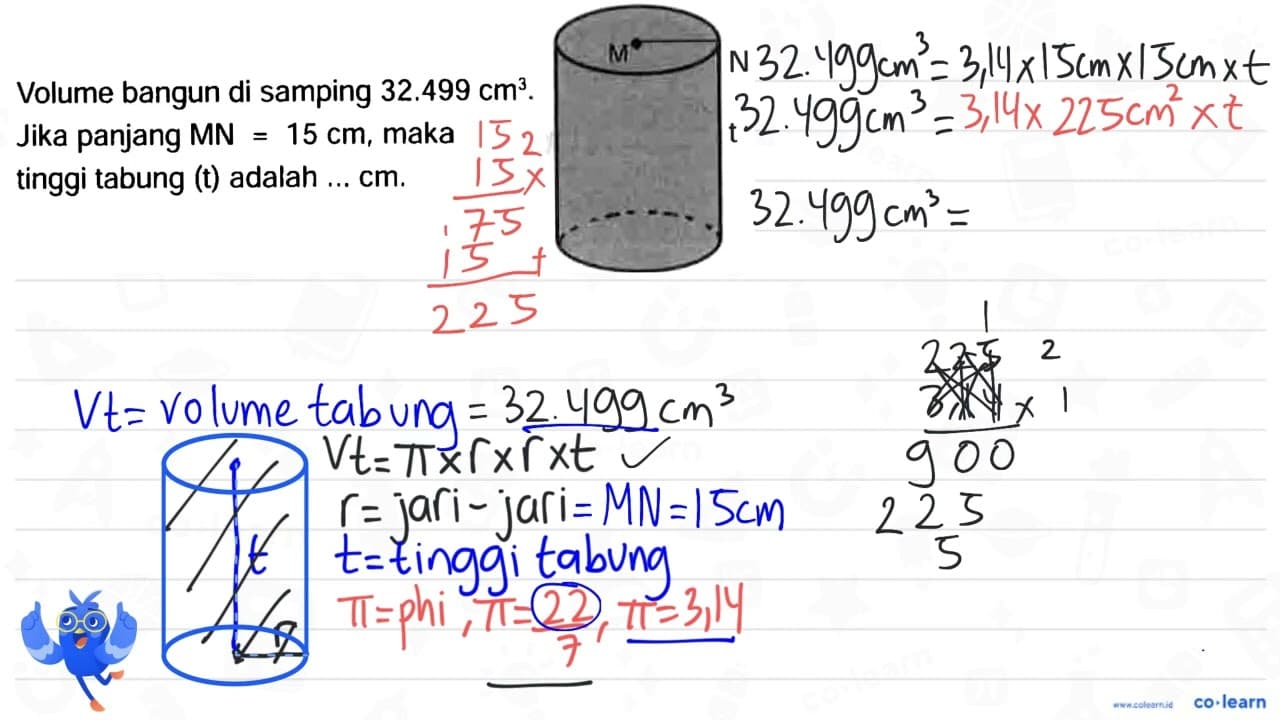 Volume bangun di samping 32.499 cm³.
Jika panjang MN = 15 cm, maka
tinggi tabung (t) adalah ... cm.
15 2
15 x
1 75
15 +
225
M
N
t
32.499 cm³ = 3,14 x 15 cm x 15 cm x t
32.499 cm³ = 3,14 x 225 cm² x t
32.499 cm³ =
1
225 2
x 1
900
225
5
Vt = volume tabung = 32.499 cm³
Vt = π x r x r x t ✓
r = jari - jari = MN = 15 cm
t = tinggi tabung
π = phi, π = 22/7, π = 3,14
t
www.colearn.id
co·learn